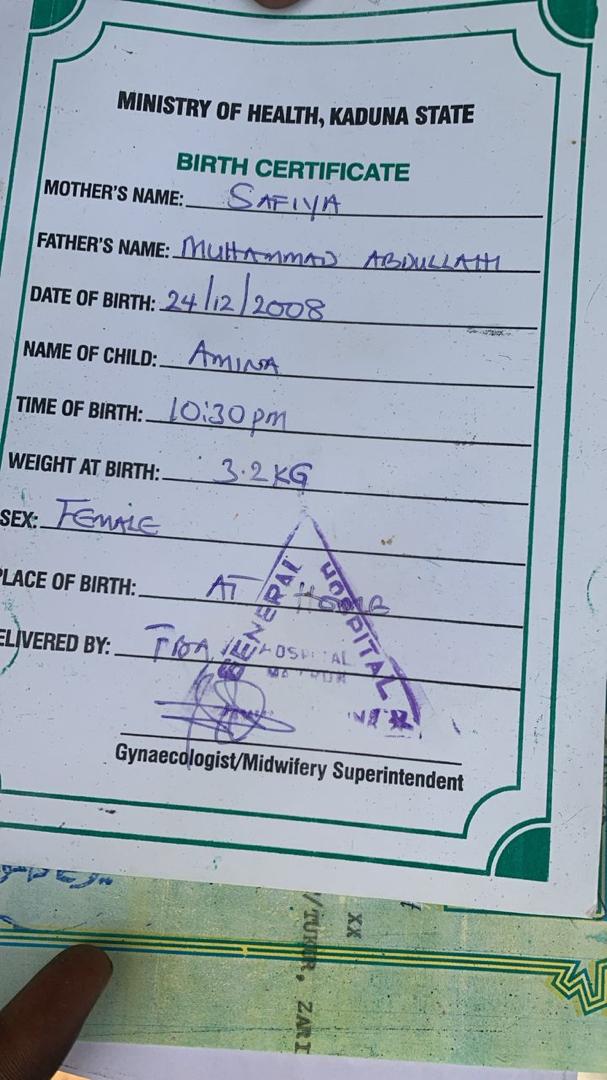 MINISTRY OF HEALTH, KADUNA STATE
BIRTH CERTIFICATE
MOTHER'S NAME: SAFIYA
FATHER'S NAME: MUHAMMAD ABDULLAHI
DATE OF BIRTH: 24/12/2008
NAME OF CHILD: AMINA
TIME OF BIRTH: 10:30pm
WEIGHT AT BIRTH: 3.2KG
SEX: FEMALE
PLACE OF BIRTH: AT HOME
ELIVERED BY: TBA
GENERAL HOSPITAL
HOSPITAL
MATRON
Gynaecologist/Midwifery Superintendent
XX
/TUKUR, ZARI